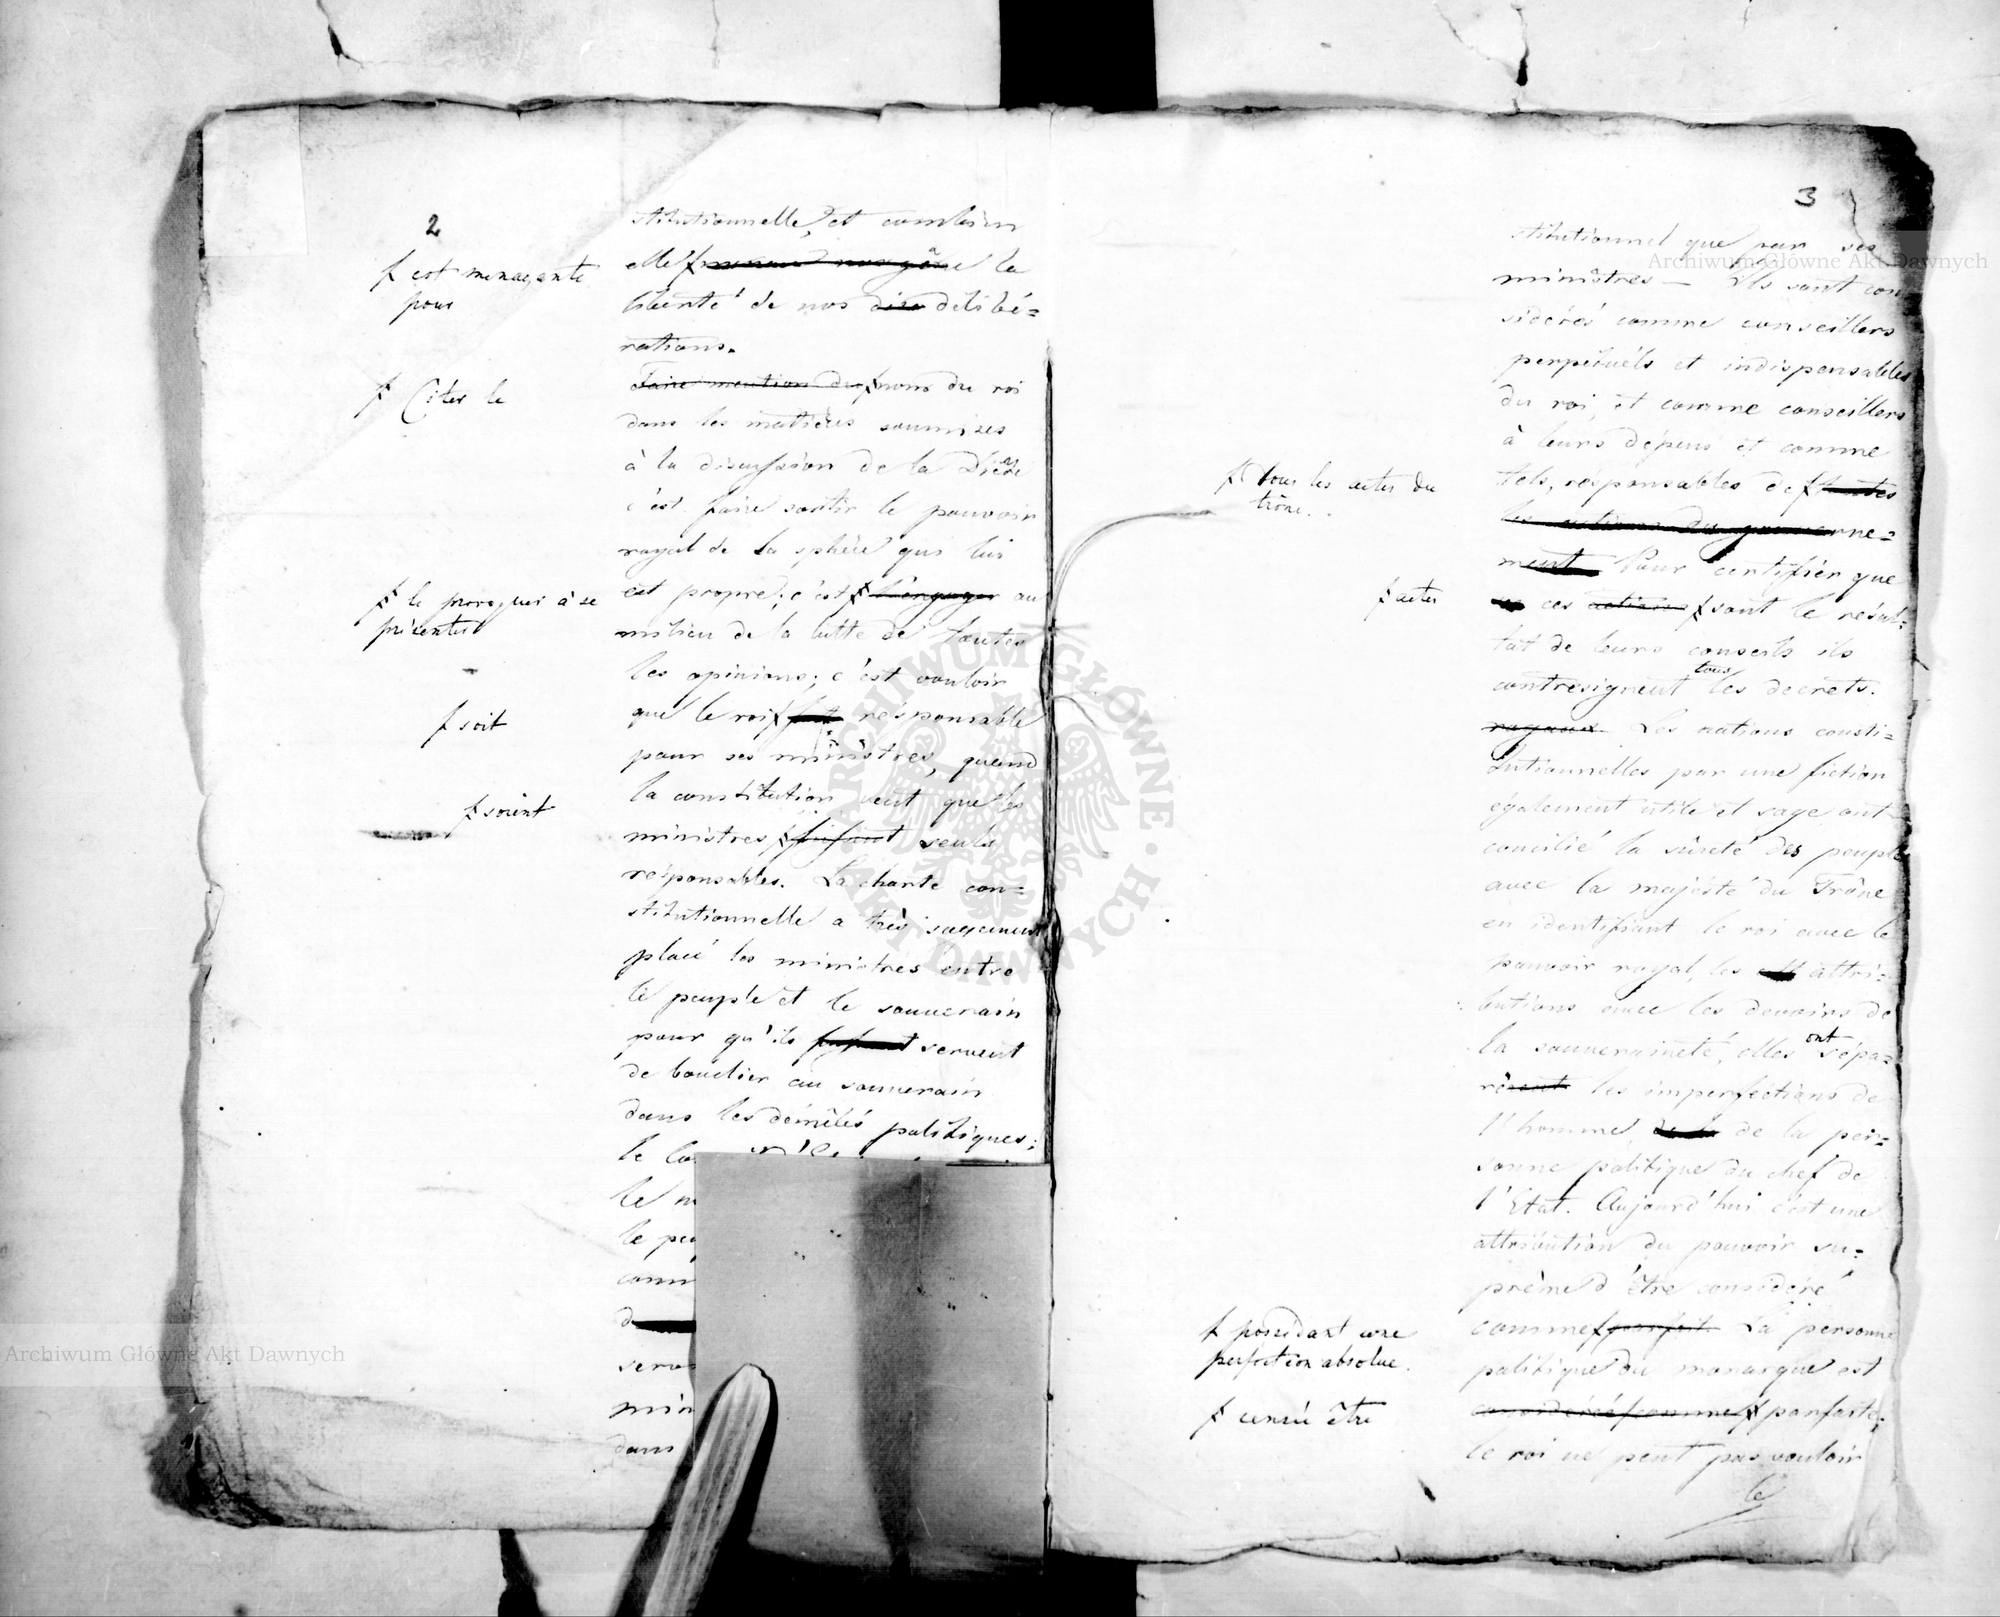 2
ƒ est menaçante
pour
ƒ Citer le
ƒ le provoquer à se
présenter
ƒ soit
ƒ soient
stitutionnelle, et combien
elle ƒ la
liberté de nos delibé=
rations.
Faire mention du ƒ nom du roi
dans les matières soumises
à la discussion de la Diète
c'est faire sortir le pouvoir
royal de la sphère qui lui
est propre; c'est ƒ l'engager au
milieu de la lutte de toutes
les opinions; c'est vouloir
que le roi ƒ responsable
pour ses ministres, quand
la constitution veut que les
ministres ƒ fussent seuls
responsables. La charte con=
stitutionnelle a très sagement
placé les ministres entre
le peuple et le souverain
pour qu'ils servent
de bouclier au souverain
dans les démêlés politiques;
le
le
le
d
dans
3
ƒ tous les actes du
trône.
ƒ actes
ƒ possédant une
perfection absolue.
ƒ censée être
stitutionnel que par ses
ministres — Ils sont con
sidérés comme conseillers
perpétuels et indispensables
du roi, et comme conseillers
à leurs dépens et comme
tels, responsables de ƒ toutes
les actions du gouverne=
ment Pour certifier que
ces actions ƒ sont le résul=
tat de leurs conseils ils
contresignent tous les decrets.
royaux. Les nations consti=
tutionnelles par une fiction
également utile et sage ont
concilié la sûreté des peuples
avec la majesté du Trône
en identifiant le roi avec le
pouvoir royal, les attri=
butions avec les devoirs de
la souveraineté, elles ont sépa=
ré les imperfections de
l'homme de la per=
sonne politique du chef de
l'Etat. Aujourd'hui c'est une
attribution du pouvoir su=
prême d'être considéré
comme ƒ parfait. La personne
politique du monarque est
considérée comme ƒ parfaite;
le roi ne peut pas vouloir
le
Archiwum Główne Akt Dawnych
Archiwum Główne Akt Dawnych
ARCHIWUM GŁÓWNE · AKT DAWNYCH ·